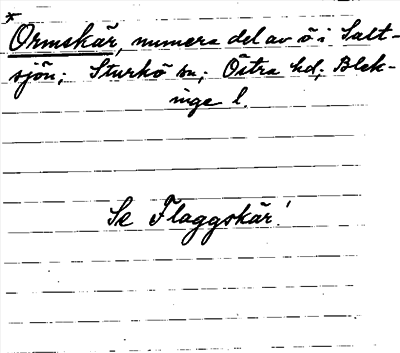 *
Ormskär, numera del av ö i Salt-
sjön; Sturkö sn; Östra hd; Blek-
inge l.
Se Flaggskär!